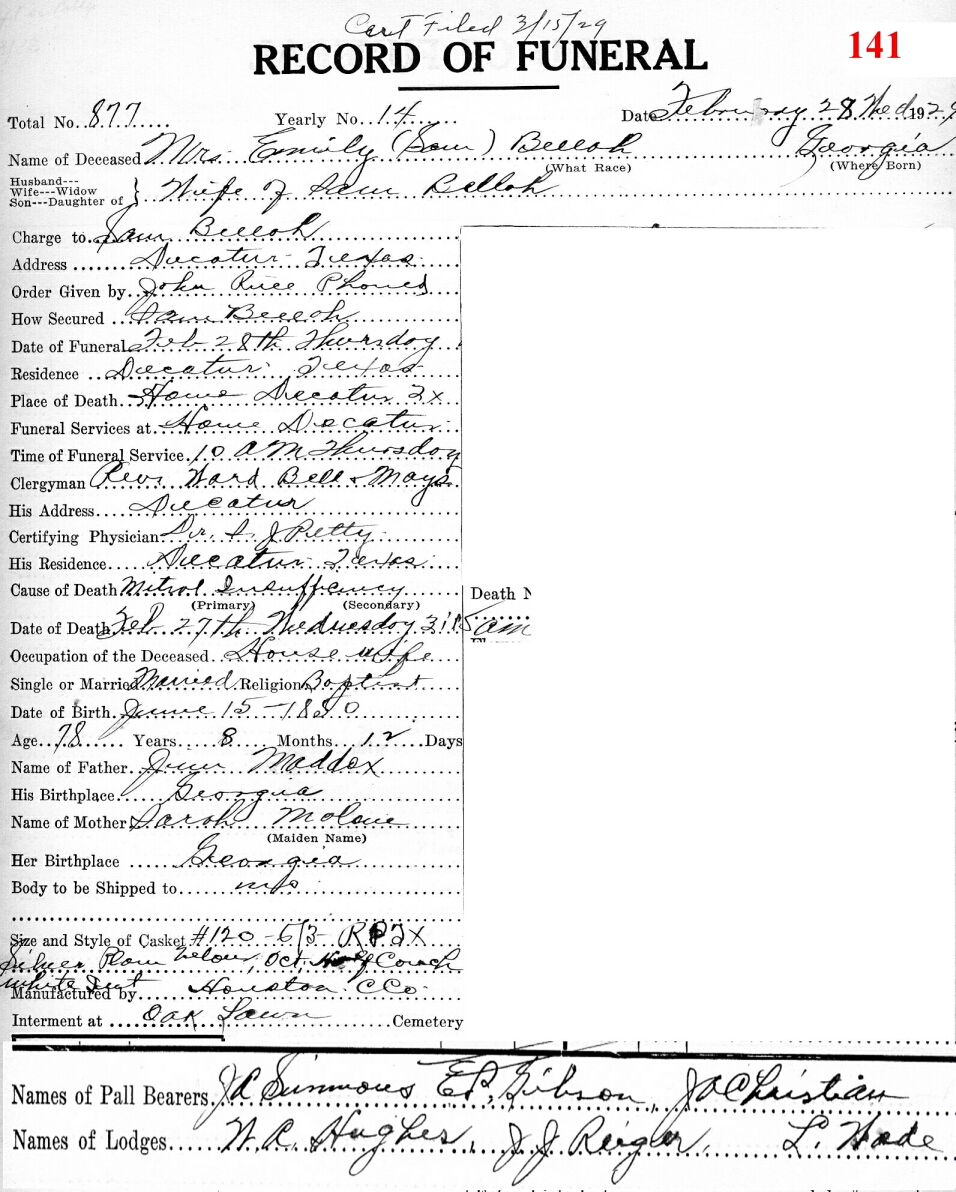 Cert Filed 3/15/29
RECORD OF FUNERAL 141
Total No. 877 Yearly No. 14 Date February 28 Wed 1929
Name of Deceased Mrs. Emily (Sam) Bellah Georgia
(What Race) (Where Born)
Husband---
Wife---Widow
Son---Daughter of } Wife of Sam Bellah
Charge to. Sam Bellah
Address Decatur Texas
Order Given by John Rice Phoned
How Secured Sam Bellah
Date of Funeral Feb 28th Thursday
Residence Decatur Texas
Place of Death. Home Decatur Tx
Funeral Services at. Home Decatur
Time of Funeral Service. 10 AM Thursday
Clergyman Revs Ward Bell & Mays
His Address Decatur
Certifying Physician Dr. J Petty
His Residence Decatur Texas
Cause of Death Mitral Insuffiency Death N
(Primary) (Secondary)
Date of Death Feb 27th Wednesday 3:15 am
Occupation of the Deceased House wife
Single or Married Married Religion Baptist
Date of Birth June 15-1850
Age 78 Years 8 Months 12 Days
Name of Father Jim Maddox
His Birthplace Georgia
Name of Mother Sarah Malone
(Maiden Name)
Her Birthplace Georgia
Body to be Shipped to no
Size and Style of Casket #120-6/3 Tx
Silver Plam velour, Oct. Coach
White Int
Manufactured by Houston C Co
Interment at Oak Lawn Cemetery
Names of Pall Bearers. J A Simmons E P. Gibson, J A Christian
Names of Lodges W. A. Hughes, J J Reiger, L. Wade